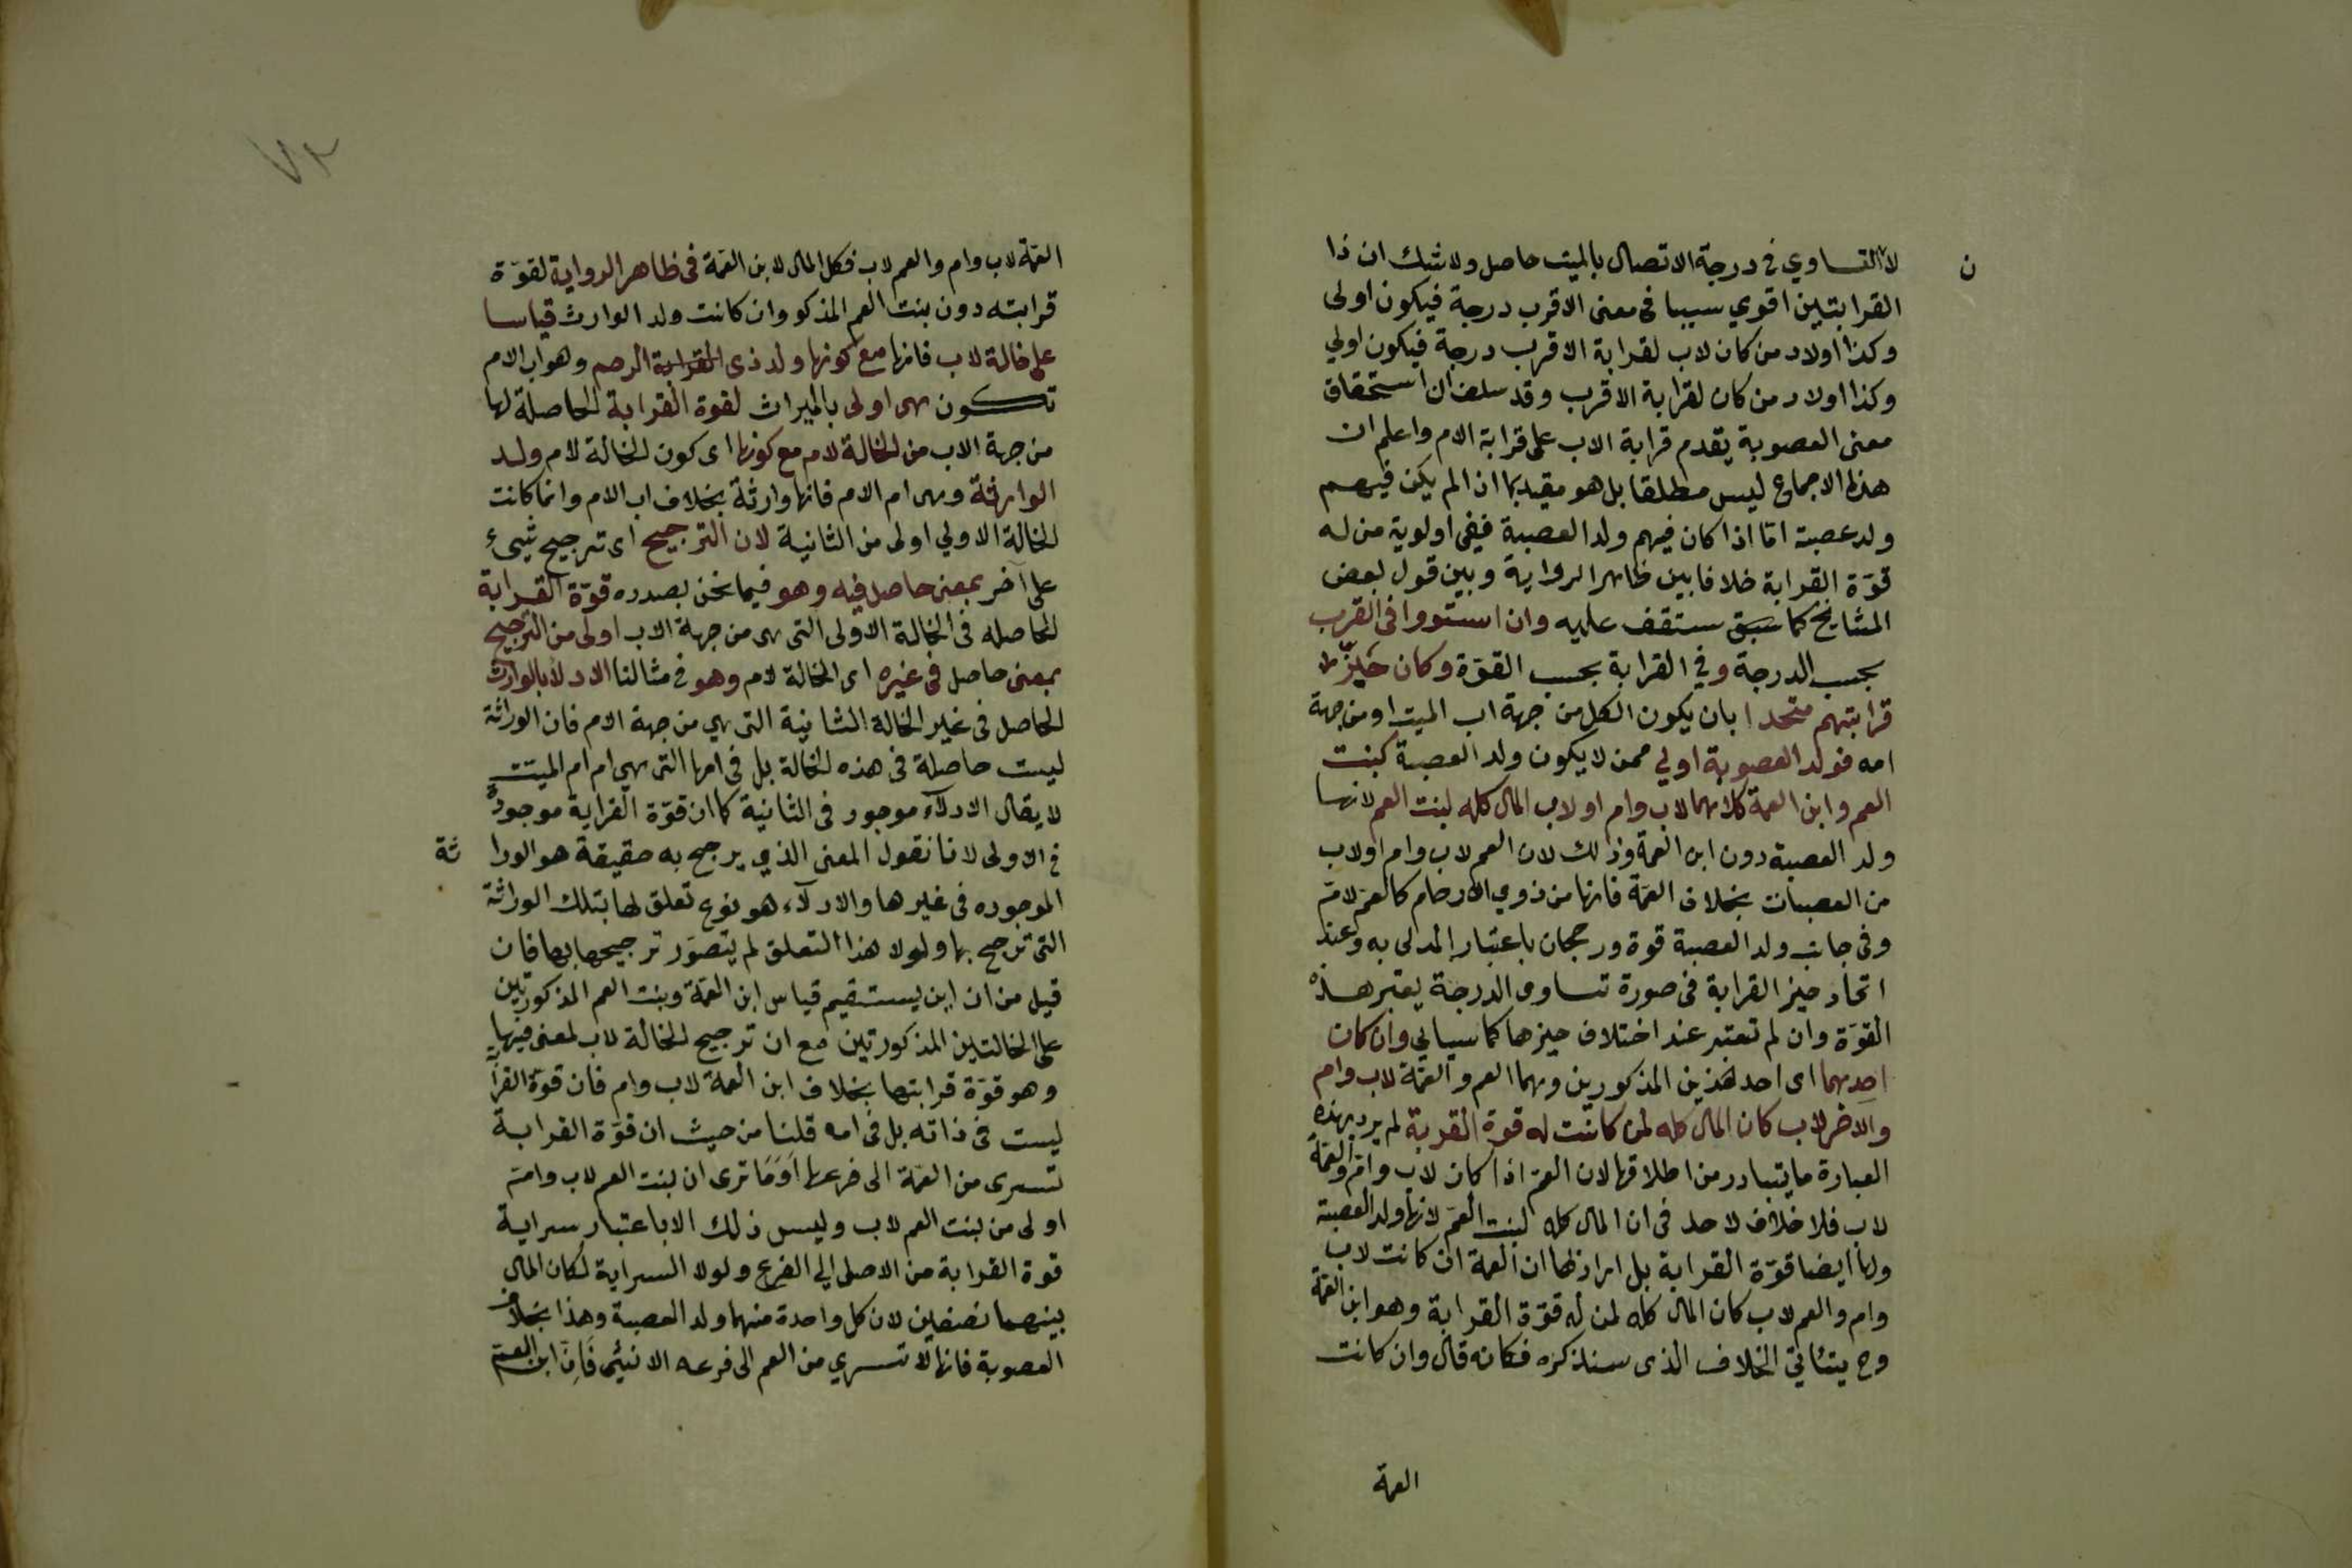 لان التساوي في درجة الاتصال بالميت حاصل ولا شك ان ذا
القرابتين اقوي سببا فى معنى الاقرب درجة فيكون اولى
وكذا اولاد من كان لاب لقرابة الاقرب درجة فيكون اولي
وكذا اولاد من كان لقرابة الاقرب وقد سلف ان استحقاق
معنى العصوبة يقدم قرابة الاب على قرابة الام واعلم ان
هذا الاجماع ليس مطلقا بل هو مقيد بما اذا لم يكن فيهم
ولد عصبة اما اذا كان فيهم ولد العصبة ففى اولوية من له
قوّة القرابة خلافا بين ظاهر الرواية وبين قول بعض
المشايخ كما سبق ستقف عليه وان استووا فى القرب
بحسب الدرجة وفي القرابة بحسب القوّة وكان حَيّزُ
قرابتهم متحدا بان يكون الكل من جهة اب الميت او من جهة
امه فولد العصوبة اولي ممن لا يكون ولد العصبة كبنت
العم وابن العمة كلاهما لاب وام او لاب المال كله لبنت العم لانها
ولد العصبة دون ابن العمة وذلك لان العم لاب وام او لاب
من العصبات بخلاف العمّة فانها من ذوي الارحام كالعم لامّ
وفى جانب ولد العصبة قوة ورجحان باعتبار المدلى به وعند
اتحاد حيز القرابة فى صورة تساوى الدرجة يعتبر هذه
القوّة وان لم تعتبر عند اختلاف حيزها كما سياتي وان كان
احدهما اى احد هذين المذكورين وهما العم والعمّة لاب وام
والاخر لاب كان المال كله لمن كانت له قوة القربة لم يرد بهذه
العبارة ما يتبادر من اطلاقها لان العمّ اذا كان لاب وام والعمّة
لاب فلا خلاف لاحد فى ان المال كله لبنت العمّ لانها ولد العصبة
ولها ايضا قوّة القرابة بل اراد بها ان العمة ان كانت لاب
وام والعم لاب كان المال كله لمن له قوّة القرابة وهو ابن العمّة
وح يتاتي الخلاف الذى سنذكره فكانه قال وان كانت
العمة
٧٢
العمّة لاب وام والعم لاب فكل المال لابن العمّة فى ظاهر الرواية لقوّة
قرابته دون بنت العم المذكو وان كانت ولد الوارث قياسا
على خالة لاب فانها مع كونها ولد ذى القرابة الرحم وهو اب الام
تكون هى اولى بالميراث لقوة القرابة الحاصلة لها
من جهة الاب من الخالة لام مع كونها اى كون الخالة لام ولد
الوارثة وهى ام الام فانها وارثة بخلاف اب الام وانما كانت
الخالة الاولي اولى من الثانية لان الترجيح اى ترجيح شيئ
على آخر بمعنى حاصل فيه وهو فيما نحن بصدده قوّة القرابة
الحاصله فى الخالة الاولى التى هى من جهة الاب اولى من الترجيح
بمعنى حاصل فى غيره اى الخالة لام وهو فى مثالنا الادلا بالوارث
الحاصل فى غير الخالة الثانية التى هي من جهة الام فان الوراثة
ليست حاصلة فى هذه الخالة بل فى امها التى هي ام ام الميت
لا يقال الادلآء موجود فى الثانية كما ان قوّة القرابة موجودة
فى الاولى لانا نقول المعنى الذي يرجح به حقيقة هو الوراثة
الموجوده فى غيرها والادلآء هو نوع تعلق لها بتلك الوراثة
التى ترجح بها ولولا هذا التعلق لم يتصوّر ترجيحها بها فان
قيل من ان اين يستقيم قياس ابن العمّة وبنت العم المذكورتين
على الخالتين المذكورتين مع ان ترجيح الخالة لاب لمعنى فيها
وهو قوّة قرابتها بخلاف ابن العمة لاب وام فان قوّة القرابة
ليست فى ذاته بل فى امه قلنا من حيث ان قوّة القرابة
تسرى من العمّة الى فرعها اوَمَا ترى ان بنت العم لاب وامّ
اولى من بنت العم لاب وليس ذلك الا باعتبار سراية
قوة القرابة من الاصل الي الفرع ولولا السراية لكان المال
بينهما نصفين لان كل واحدة منهما ولد العصبة وهذا بخلاف
العصوبة فانها لا تسري من العم الى فرعه الانثى فَاِنّ ابن العمّ